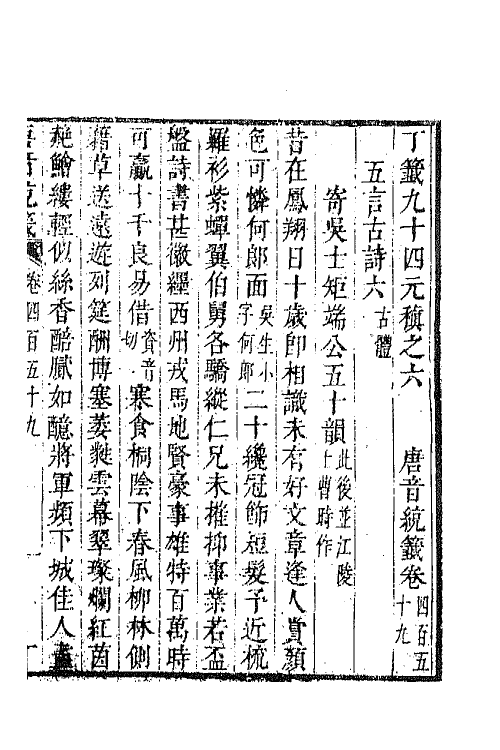 丁籤九十四元稹之六　唐音統籤卷四百五十九
五言古詩六古體
寄吳士矩端公五十韻此後並江陵士曹時作
昔在鳳翔日十歲即相識未有好文章逢人賞顏
色可憐何郎面吳生小字何郎二十纔冠飾短髮予近梳
羅衫紫蟬翼伯舅各驕縱仁兄未摧抑事業若盃
盤詩書甚徽纆西州戎馬地賢豪事雄特百萬時
可贏十千良易借資昔切寒食桐陰下春風柳林側
藉草送遠遊列筵酬博塞萎蕤雲幕翠璨爛紅茵
赩鱠縷輕似絲香醅膩如䤈將軍頻下城佳人盡
唐音統籤　卷四百五十九